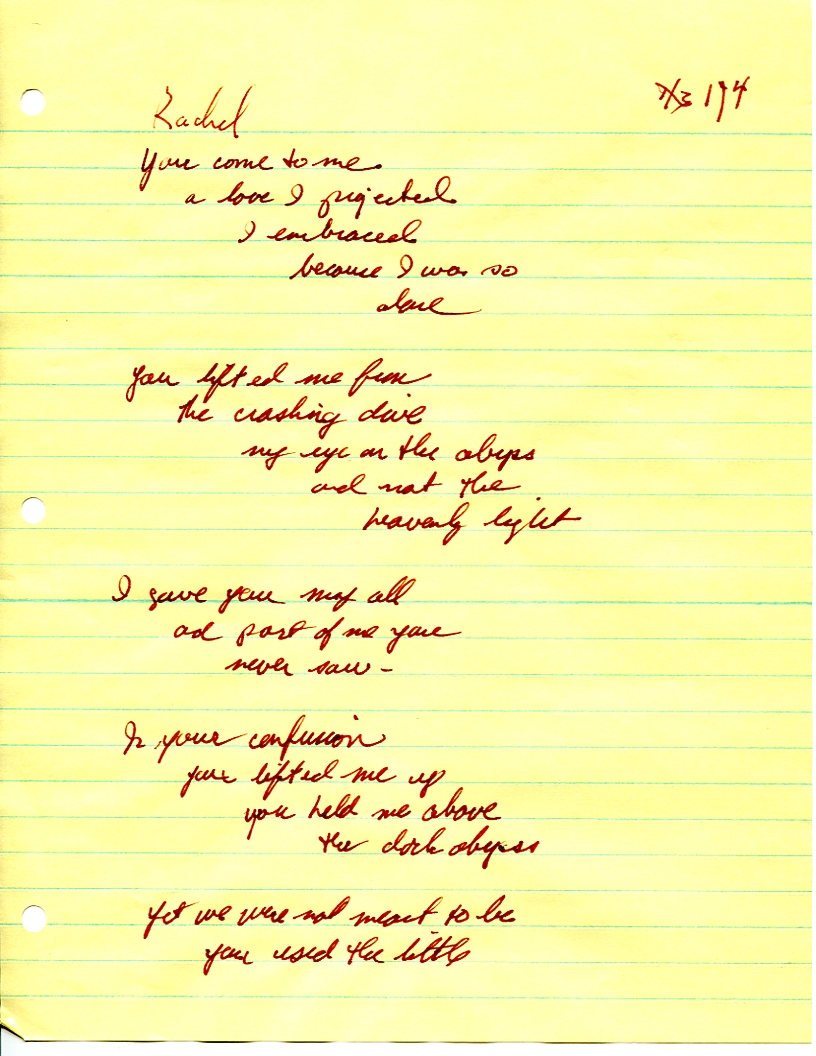 Rachel
You come to me
a love I projected
I embraced
because I was so
alone
You lifted me from
the crashing dive
my eye on the abyss
and not the
heavenly light
I gave you my all
ad part of me you
never saw -
In your confusion
you lifted me up
you held me above
the dark abyss
Yet we were not meant to be
you used the little